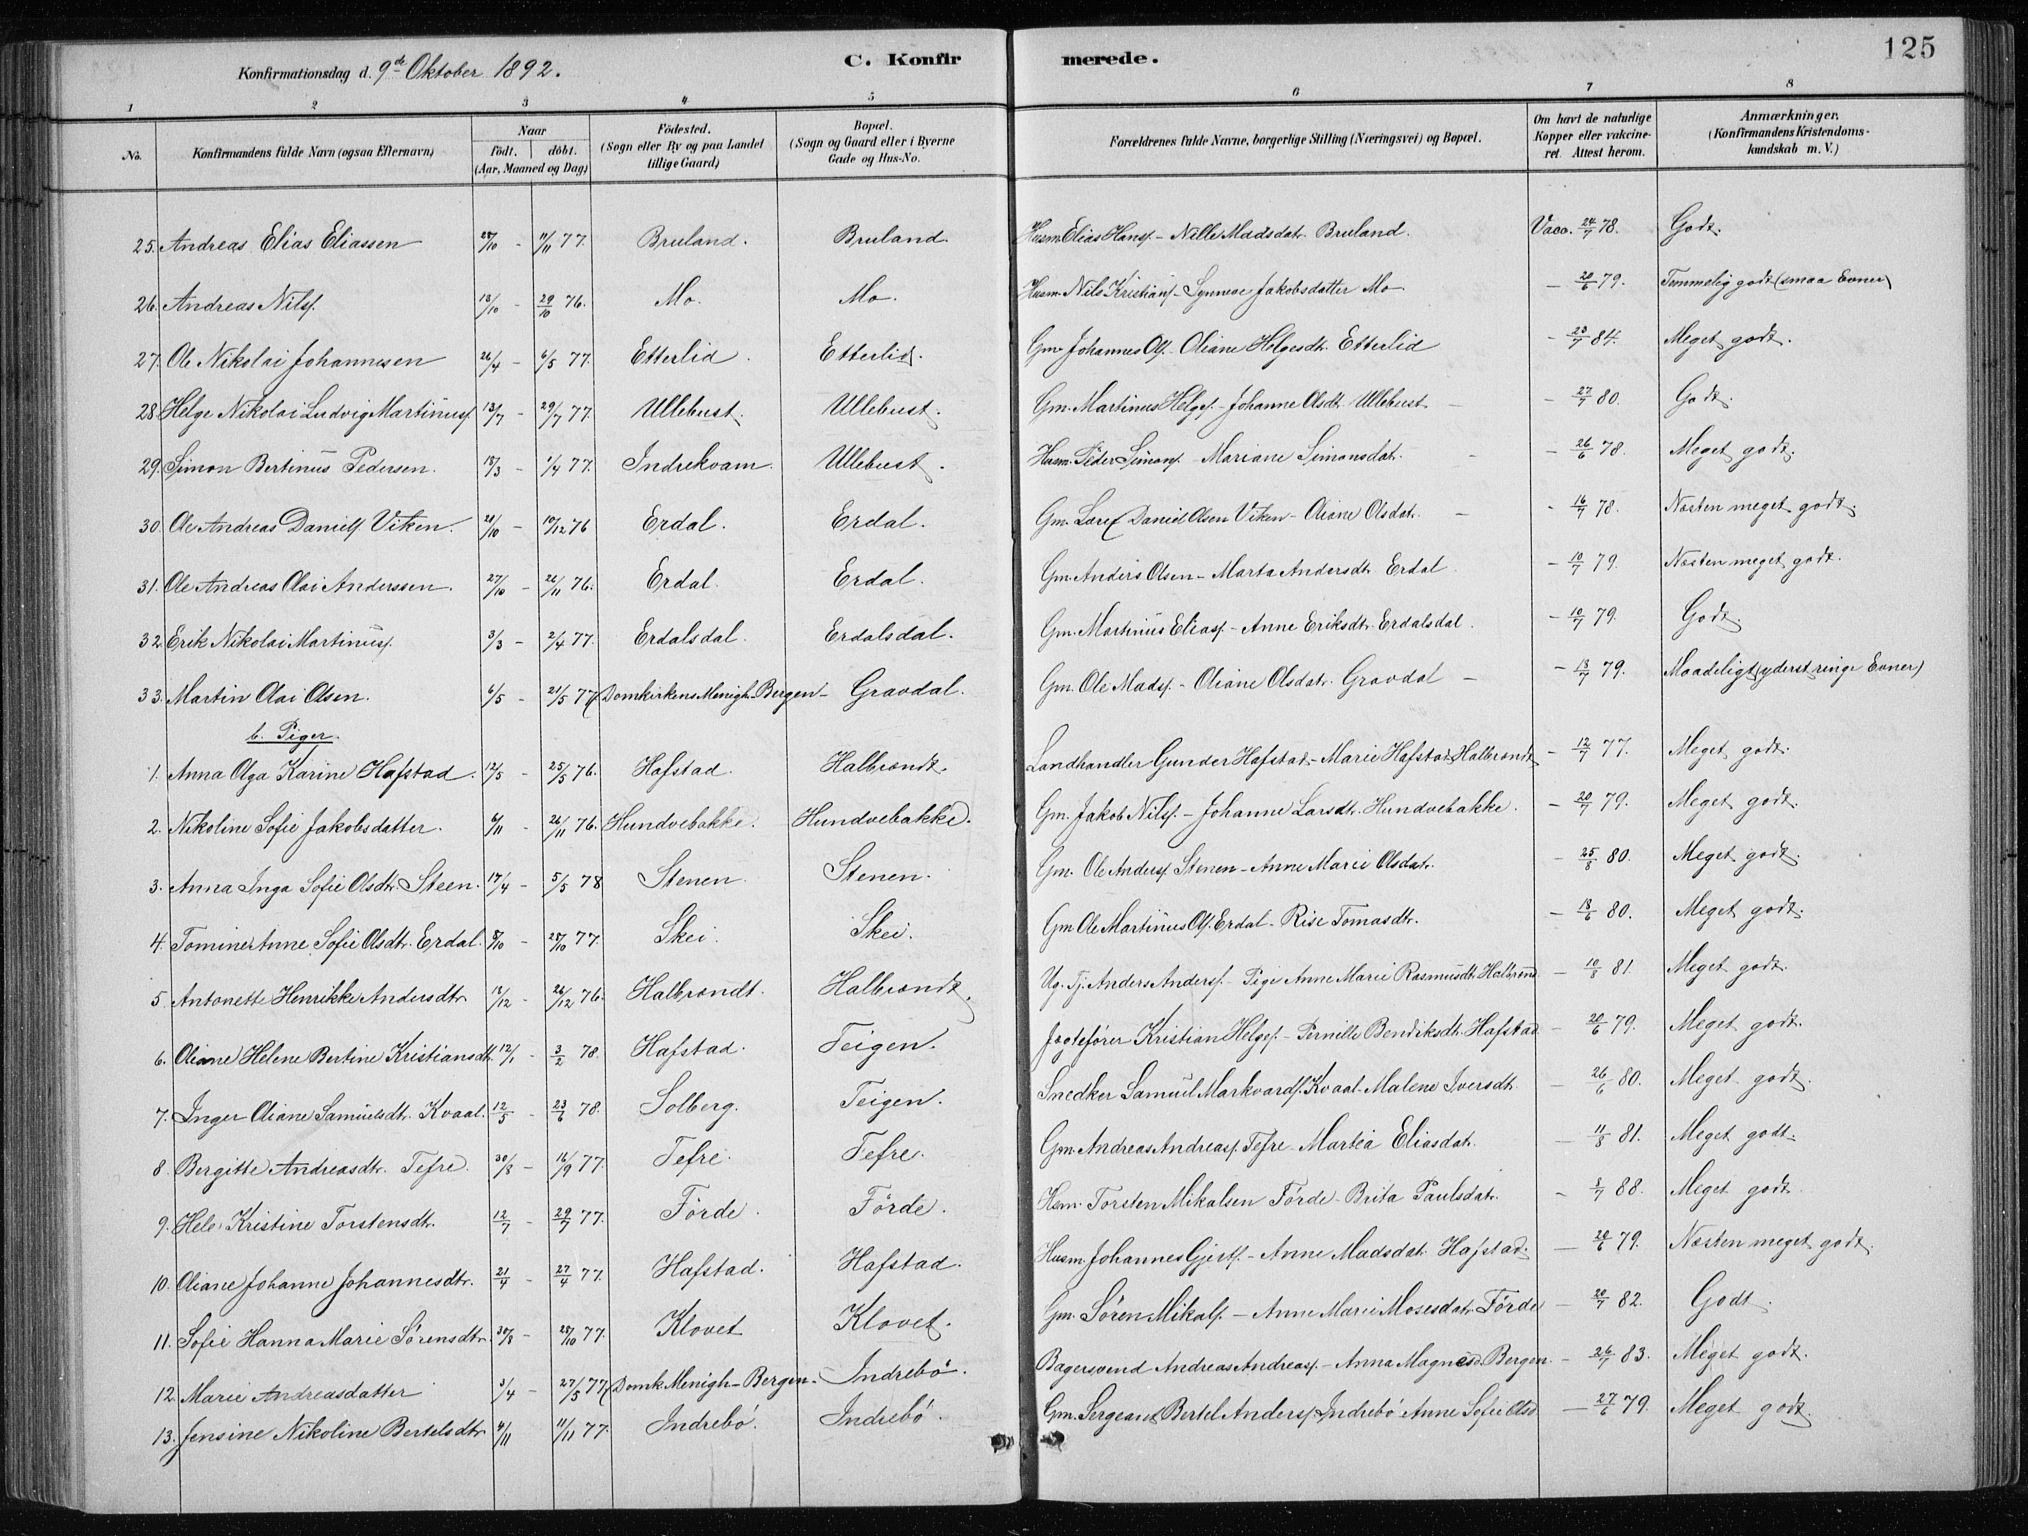 125
Konfirmationsdag d. 9de Oktober 1892. C. Konfirmerede.
1 2 3 4 5 6 7 8
No. Konfirmandens fulde Navn (ogsaa Efternavn) Naar födt. döbt. (Aar, Maaned og Dag) Födested. (Sogn eller By og paa Landet tillige Gaard) Bopæl. (Sogn og Gaard eller i Byerne Gade og Hus-No. Forældrenes fulde Navne, borgerlige Stilling (Næringsvei) og Bopæl. Om havt de naturlige Kopper eller vakcineret. Attest herom. Anmærkninger. (Konfirmandens Kristendomskundskab m. V.)
25. Andreas Elias Eliassen 28/10 - 11/11 77. Bruland. Bruland. Husm. Elias Hansf. - Nille Madsdat. Bruland. Vacc. 24/7 78. Godt.
26. Andreas Nilsf. 13/10 - 29/10 76. Mo. Mo. Husm. Nils Kristiansf. - Synneve Jakobsdatter Mo - 20/6 79. Temmelig godt (smaa Evner)
27. Ole Nikolai Johannesen 26/4 - 6/5 77. Etterlid. Etterlid. Gm. Johannes Olsf. - Oliane Helgesdt. Etterlid - 23/7 84. Meget godt.
28. Helge Nikolai Ludvig Martinusf. 13/7 - 29/7 77. Ullebust. Ullebust. Gm. Martinus Helgesf. - Johanne Olsdt. Ullebust - 27/7 80. Godt.
29. Simon Bertinus Pedersen. 18/3 - 1/4 77. Indrekvam. Ullebust. Husm. Peder Simonsf. Mariane Simonsdat. - 26/6 78. Meget godt.
30. Ole Andreas Danielsf. Viken. 21/10 - 10/12 76 Erdal. Erdal. Gm. Lærer Daniel Olsen Viken - Oliane Olsdat. - 16/7 78. Næsten meget godt.
31. Ole Andreas Olai Anderssen. 27/10 - 26/11 76. Erdal. Erdal. Gm. Anders Olsen - Marta Andersdt. Erdal - 10/7 79. Næsten meget godt.
32. Erik Nikolai Martinusf. 3/3 - 2/4 77. Erdalsdal. Erdalsdal. Gm. Martinus Eliasf. - Anne Eriksdt. Erdalsdal. - 10/7 79. Godt.
33. Martin Olai Olsen. 6/5 - 21/5 77 Domkirkens Menigh. Bergen - Gravdal. Gm. Ole Madsf. - Oliane Olsdat. Gravdal - 13/7 79. Maadeligt (yderst ringe Evner)
b. Piger.
1. Anna Olga Karine Hafstad. 12/5 - 25/5 76. Hafstad. Halbrendt. Landhandler Gunder Hafstad - Marie Hafstad Halbrendt - 12/7 77. Meget godt.
2. Nikoline Sofie Jakobsdatter. 6/11 - 26/11 76. Hundvebakke. Hundvebakke. Gm. Jakob Nilsf. - Johanne Larsdt. Hundvebakke. - 20/7 79. Meget godt.
3. Anna Inga Sofie Olsdtr. Steen. 17/4 - 5/5 78 Stenen. Stenen. Gm. Ole Andersf. Stenen - Anne Marie Olsdat. - 25/8 80. Meget godt.
4. Tomine Anne Sofie Olsdt. Erdal. 8/10 - 28/10 77. Skei. Skei. Gm. Ole Martinus Olsf. Erdal - Rise Tomasdtr. - 18/6 80. Meget godt.
5. Antonette Henrikke Andersdtr. 12/12 - 26/12 76. Halbrendt. Halbrendt. Ug. Tj. Anders Andersf. - Pige Anne Marie Rasmusdt. Halbrend. - 10/8 81. Meget godt.
6. Oliane Helene Bertine Kristiansdt. 12/1 - 3/2 78. Hafstad. Teigen. Jægtefører Kristian Helgesf. - Pernille Bendiksdt. Hafstad - 20/6 79. Meget godt.
7. Inger Oliane Samuelsdt. Kvaal. 12/5 - 23/6 78. Solberg. Teigen. Snedker Samuel Markvardsf. Kvaal - Malene Iversdt. - 26/6 80. Meget godt.
8. Bergitte Andreasdt. Tefre. 30/8 - 16/9 77. Tefre. Tefre. Gm. Andreas Andreasf. Tefre - Martea Eliasdat. - 11/8 81. Meget godt.
9. Kristine Torstensdt. 12/7 - 29/7 77. Förde. Förde. Hsm. Torsten Mikalsen Förde - Brita Paulsdat. - 8/7 88. Meget godt
10. Oliane Johanne Johannesdtr. 21/4 - 27/4 77. Hafstad. Hafstad. Husm. Johannes Gjertsf. - Anne Madsdat. Hafstad. - 20/6 79. Næsten meget godt.
11. Sofie Hanna Marie Sörensdtr. 30/8 - 28/10 77. Klovet Klovet. Gm. Sören Mikalsf. - Anne Marie Mosesdat. Förde - 20/7 82. Godt.
12. Marie Andreasdatter 3/4 - 27/5 77 Domk. Menigh. - Bergen. Indrebö. Bagersvend Andreas Andreasf. - Anna Magnesd. Bergen. - 26/7 83. Meget godt.
13. Jensine Nikoline Bertelsdtr. 4/11 11/11 77. Indrebö. Indrebö. Gm. Sergeant Bertel Andersf. Indrebö Anne Sofie Olsd. - 27/6 79. Meget godt.